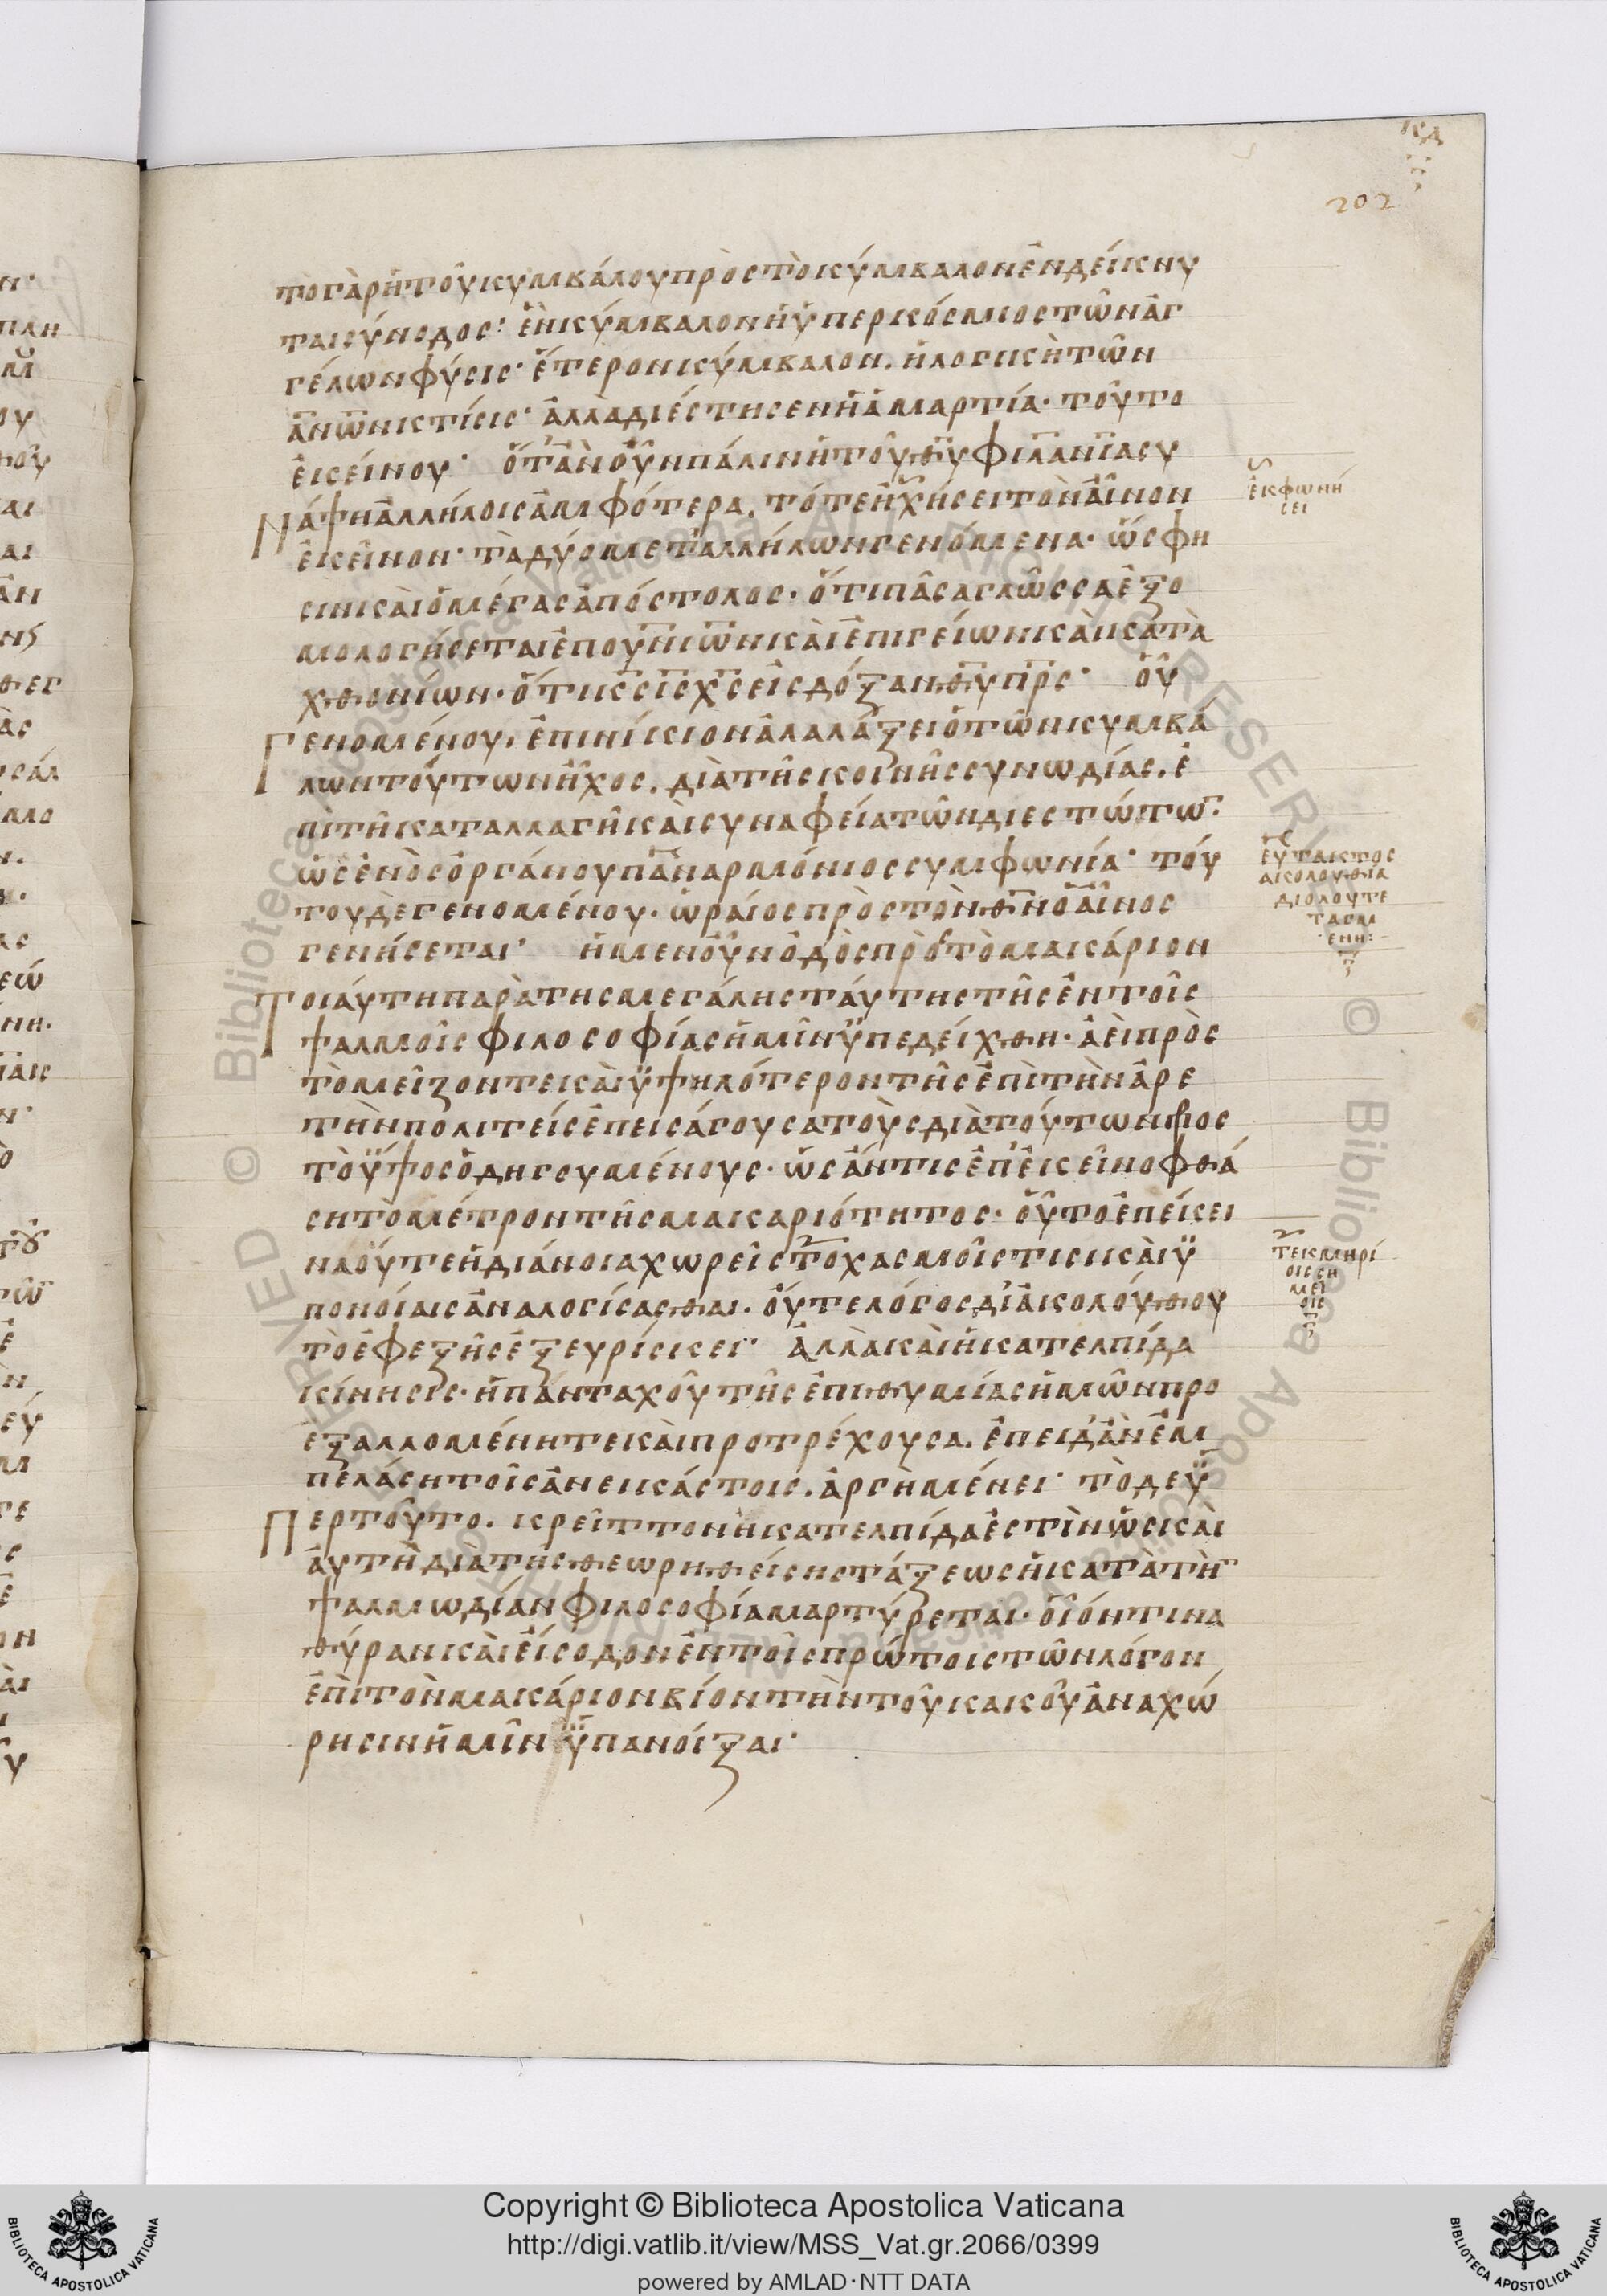 κδ
202
τογὰρἡτοῦκυμβάλουπρὸςτὸκύμβαλονἐνδείκνυ
ταισύνοδος· ἓνκύμβαλονἡὑπερκόσμιοςτῶνἀγ
γέλωνφύσις· ἕτερονκύμβαλον. ἡλογικὴτῶν
ἀν̅ω̅νκτίσις· ἀλλὰδιέστησενἡἁμαρτία· τοῦτο
ἐκείνου· ὅτἂνοὖνπάλινἡτοῦθ̅υ̅φιλαν̅ι̅ασυ
νάψηἀλλήλοιςἀμφότερα. τότεἠχήσειτὸναἶνον
ἐκεῖνον· τὰδύομετ'ἀλλήλωνγενόμενα· ὥςφη
σινκαὶὁμέγαςἀπόστολος· ὅτιπᾶσαγλῶσσαἐξο
μολογήσεταιἐπουν̅ι̅ω̅νκαὶἐπιγείωνκαὶκατα
χθονίων· ὅτικ̅ς̅ι̅ς̅χ̅ς̅εἰςδόξανθ̅υ̅π̅ρ̅ς̅· οὗ
γενομένου, ἐπινίκιονἀλαλάζειὁτῶνκυμβά
λωντούτωνἦχος. διὰτῆςκοινῆςσυνωδίας. ἐ
πὶτῆκαταλλαγῆκαὶσυναφείατῶνδιεστώτω̅·
ὡςἑνὸςὀργάνουπαναρμόνιοςσυμφωνία· τού
τουδὲγενομένου· ὡραίοςπρὸςτὸνθ̅ν̅ὁαἶνος
γενήσεται· ἡμενοὖνὁδὸςπρὸςτὸμακάριον
τοιάυτηπαρὰτηςμεγάληςτάυτηςτῆςἐντοῖς
ψαλμοῖςφιλοσοφίαςἡμῖνὑπεδείχθη· ἀεὶπρὸς
τὸμεῖζοντεκαὶὑψηλότεροντῆςἐπὶτὴνἀρε
τὴνπολιτείςἐπεισάγουσατοὺςδιὰτούτωνπρος
τὸὕψοςὁδηγουμένους· ὡςἄντιςἐπ'ἐκεῖνοφθά
σητὸμέτροντῆςμακαριότητος· οὗτὸἐπέκει
ναοὔτεἡδιάνοιαχωρεῖστοχασμοῖςτισικαὶὑ
πονοίαιςἀναλογίσασθαι. οὔτελόγοςδἰἀκολούθου
τὸἐφεξῆςἐξευρίσκει· ἀλλὰκαὶἡκατελπίδα
κίνησις· ἡπάνταχοῦτῆςἐπιθυμίαςἡμῶνπρο
εξαλλομένητεκαὶπροτρέχουσα. ἐπειδ'ἂνἐμ
πελάσητοῖςἀνεικάστοις. ἀργὴμένει· τὸδεὑ
περτοῦτο. κρεῖττονἢκατελπίδαἐστὶνὥςκαὶ
ἀυτὴδιὰτῆςθεωρηθείσηςτάξεωςἡκατὰτὴ̅
ψαλμωδίανφιλοσοφίαμαρτύρεται· οἷόντινα
θύρανκαὶεἴσοδονἐντοῖςπρώτοιςτῶνλόγον
ἐπὶτὸνμακάριονβίοντὴντοῦκακοῦἀναχώ
ρησινἡμῖνὑπανοίξαι·
ἐκφωνή
σει
εὐτακτος
ακολουθία
διολουτε
ταγμ
ενη:
τεκμηρί
οιςση
μεί
οις
Copyright © Biblioteca Apostolica Vaticana
http://digi.vatlib.it/view/MSS_Vat.gr.2066/0399
powered by AMLAD·NTT DATA